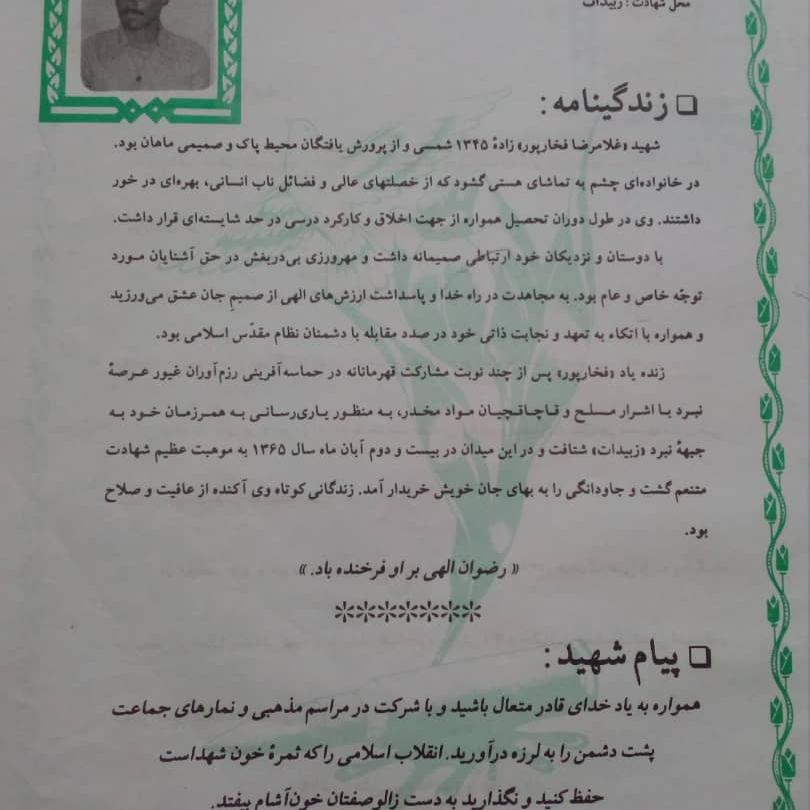 محل شهادت : زبیدات
❑ زندگینامه :
شهید «غلامرضا فخارپور» زادهٔ ۱۳۴۵ شمسی و از پرورش یافتگان محیط پاک و صمیمی ماهان بود.
در خانواده‌ای چشم به تماشای هستی گشود که از خصلتهای عالی و فضائل ناب انسانی، بهره‌ای در خور
داشتند. وی در طول دوران تحصیل همواره از جهت اخلاق و کارکرد درسی در حد شایسته‌ای قرار داشت.
با دوستان و نزدیکان خود ارتباطی صمیمانه داشت و مهرورزی بی‌دریغش در حق آشنایان مورد
توجّه خاص و عام بود. به مجاهدت در راه خدا و پاسداشت ارزش‌های الهی از صمیم جان عشق می‌ورزید
و همواره با اتکاء به تعهد و نجابت ذاتی خود در صدد مقابله با دشمنان نظام مقدّس اسلامی بود.
زنده یاد «فخارپور» پس از چند نوبت مشارکت قهرمانانه در حماسه‌آفرینی رزم‌آوران غیور عرصهٔ
نبرد با اشرار مسلح و قاچاقچیان مواد مخدر، به منظور یاری‌رسانی به همرزمان خود به
جبههٔ نبرد «زبیدات» شتافت و در این میدان در بیست و دوم آبان ماه سال ۱۳۶۵ به موهبت عظیم شهادت
متنعم گشت و جاودانگی را به بهای جان خویش خریدار آمد. زندگانی کوتاه وی آکنده از عافیت و صلاح
بود.
« رضوان الهی بر او فرخنده باد. »
*******
❑ پیام شهید :
همواره به یاد خدای قادر متعال باشید و با شرکت در مراسم مذهبی و نمازهای جماعت
پشت دشمن را به لرزه درآورید. انقلاب اسلامی را که ثمرهٔ خون شهداست
حفظ کنید و نگذارید به دست زالوصفتان خون‌آشام بیفتد.